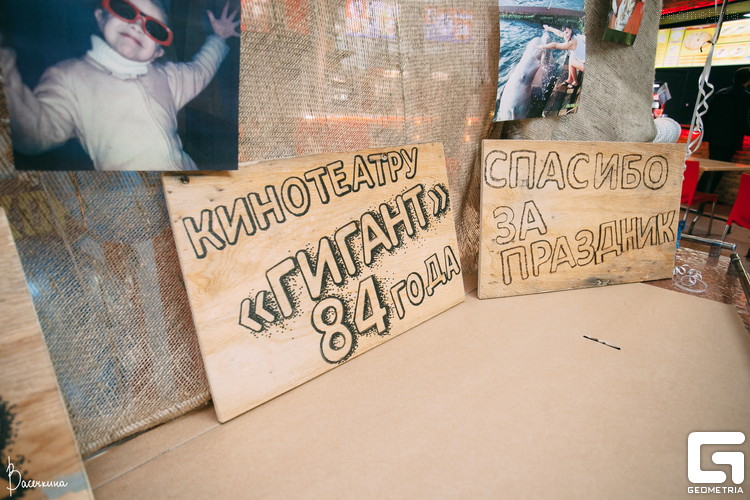 КИНОТЕАТРУ
«ГИГАНТ»
84 ГОДА
СПАСИБО
ЗА
ПРАЗДНИК
Васечкина
GEOMETRIA